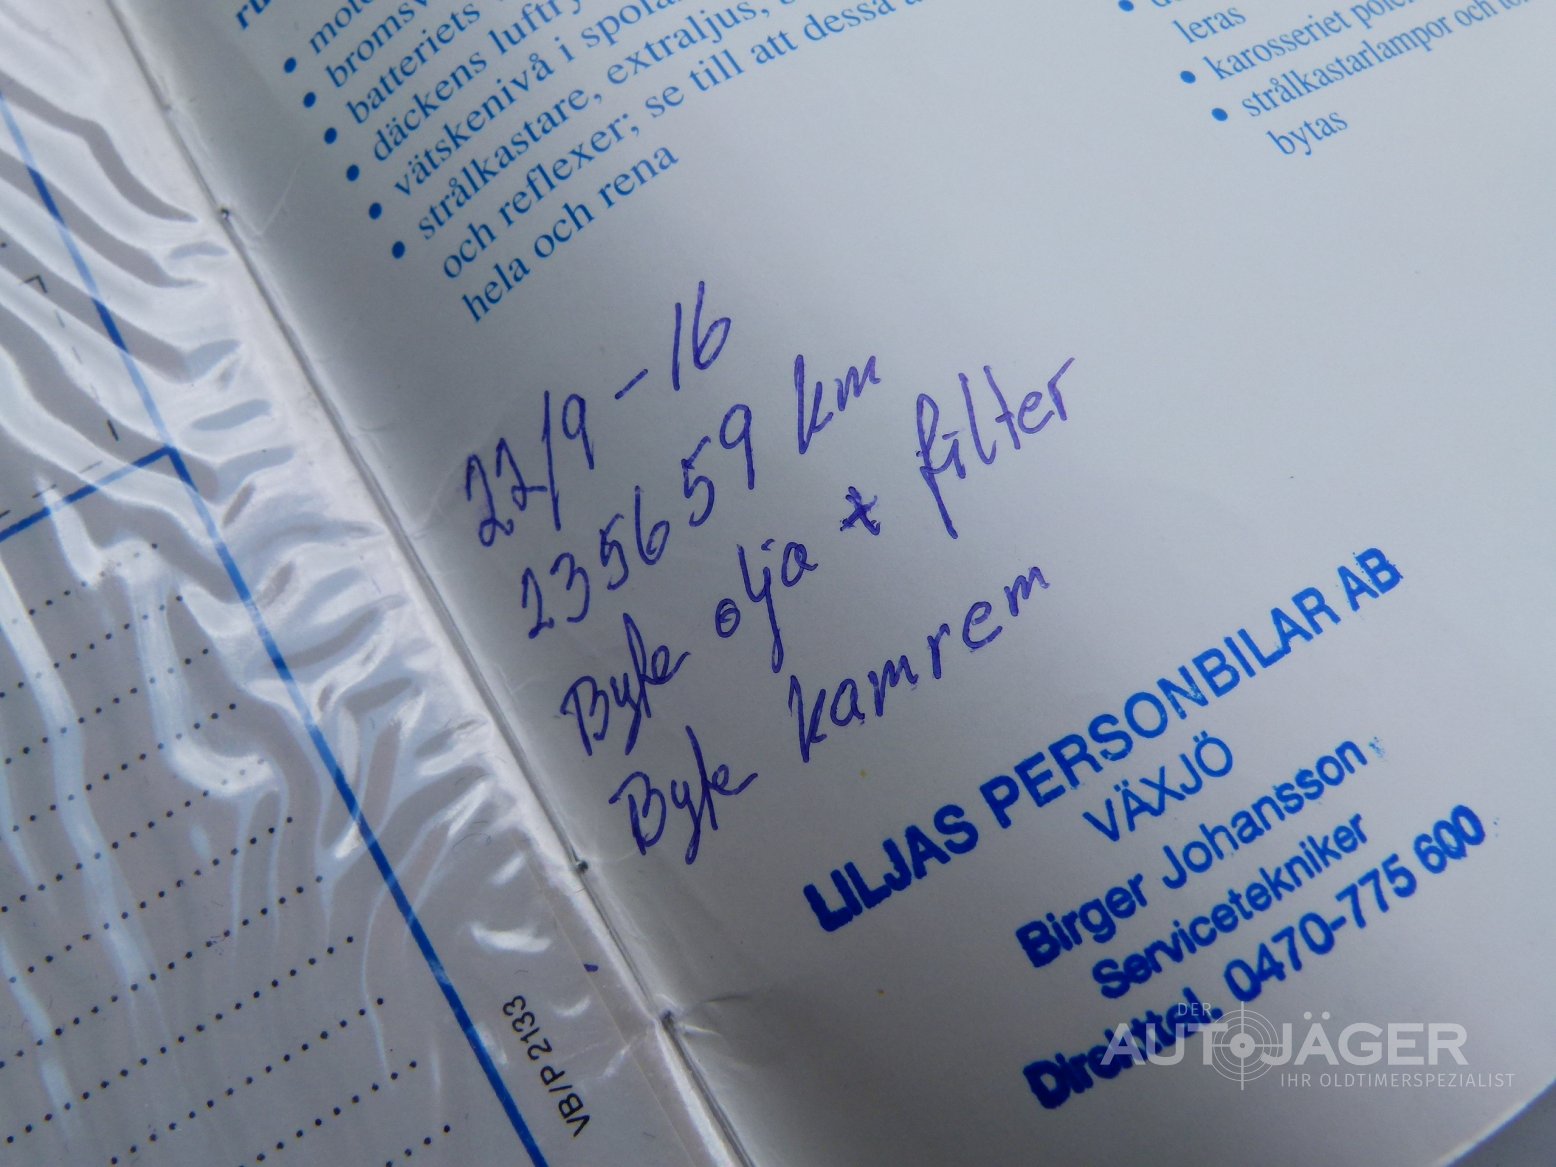 bromsv
batteriets
däckens luftry
vätskenivå i spola
strålkastare, extraljus,
och reflexer; se till att dessa ä
hela och rena
leras
karosseriet
strålkastarlampor och
bytas
22/9-16
235659 km
Byte olja + filter
Byte kamrem
LILJAS PERSONBILAR AB
VÄXJÖ
Birger Johansson
Servicetekniker
Direkttel. 0470-775 600
VB/P 2133
DER
AUTOJÄGER
IHR OLDTIMERSPEZIALIST